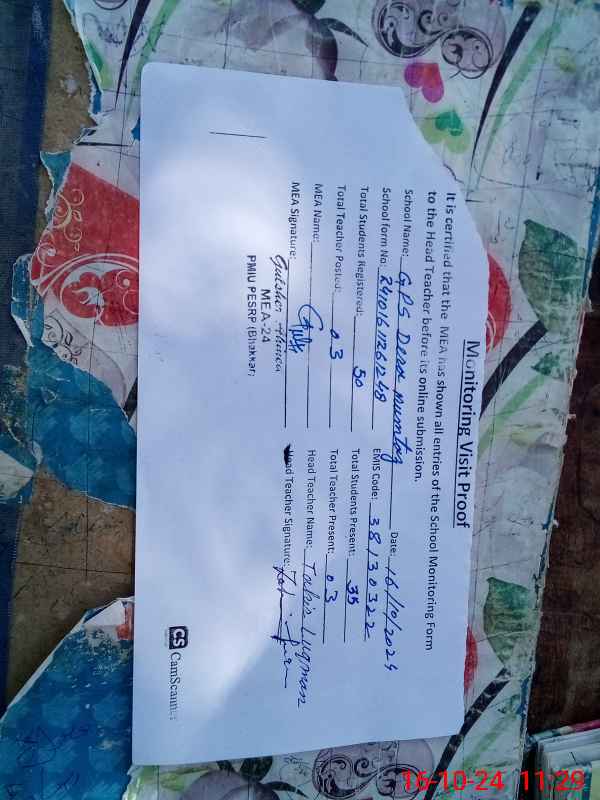 Monitoring Visit Proof
It is certified that the MEA has shown all entries of the School Monitoring Form
to the Head Teacher before its online submission.
School Name: GPS Dera Mumtaz Date: 16/10/2024
School form No: 2410161261248 EMIS Code: 38130322
Total Students Registered: 50 Total Students Present: 35
Total Teacher Posted: 03 Total Teacher Present: 03
MEA Name: Head Teacher Name: Tahir Luqman
MEA Signature: Head Teacher Signature:
Gulsher
MEA-24
PMIU PESRP (Bhakkar)
CS CamScanner
16-10-24 11:29